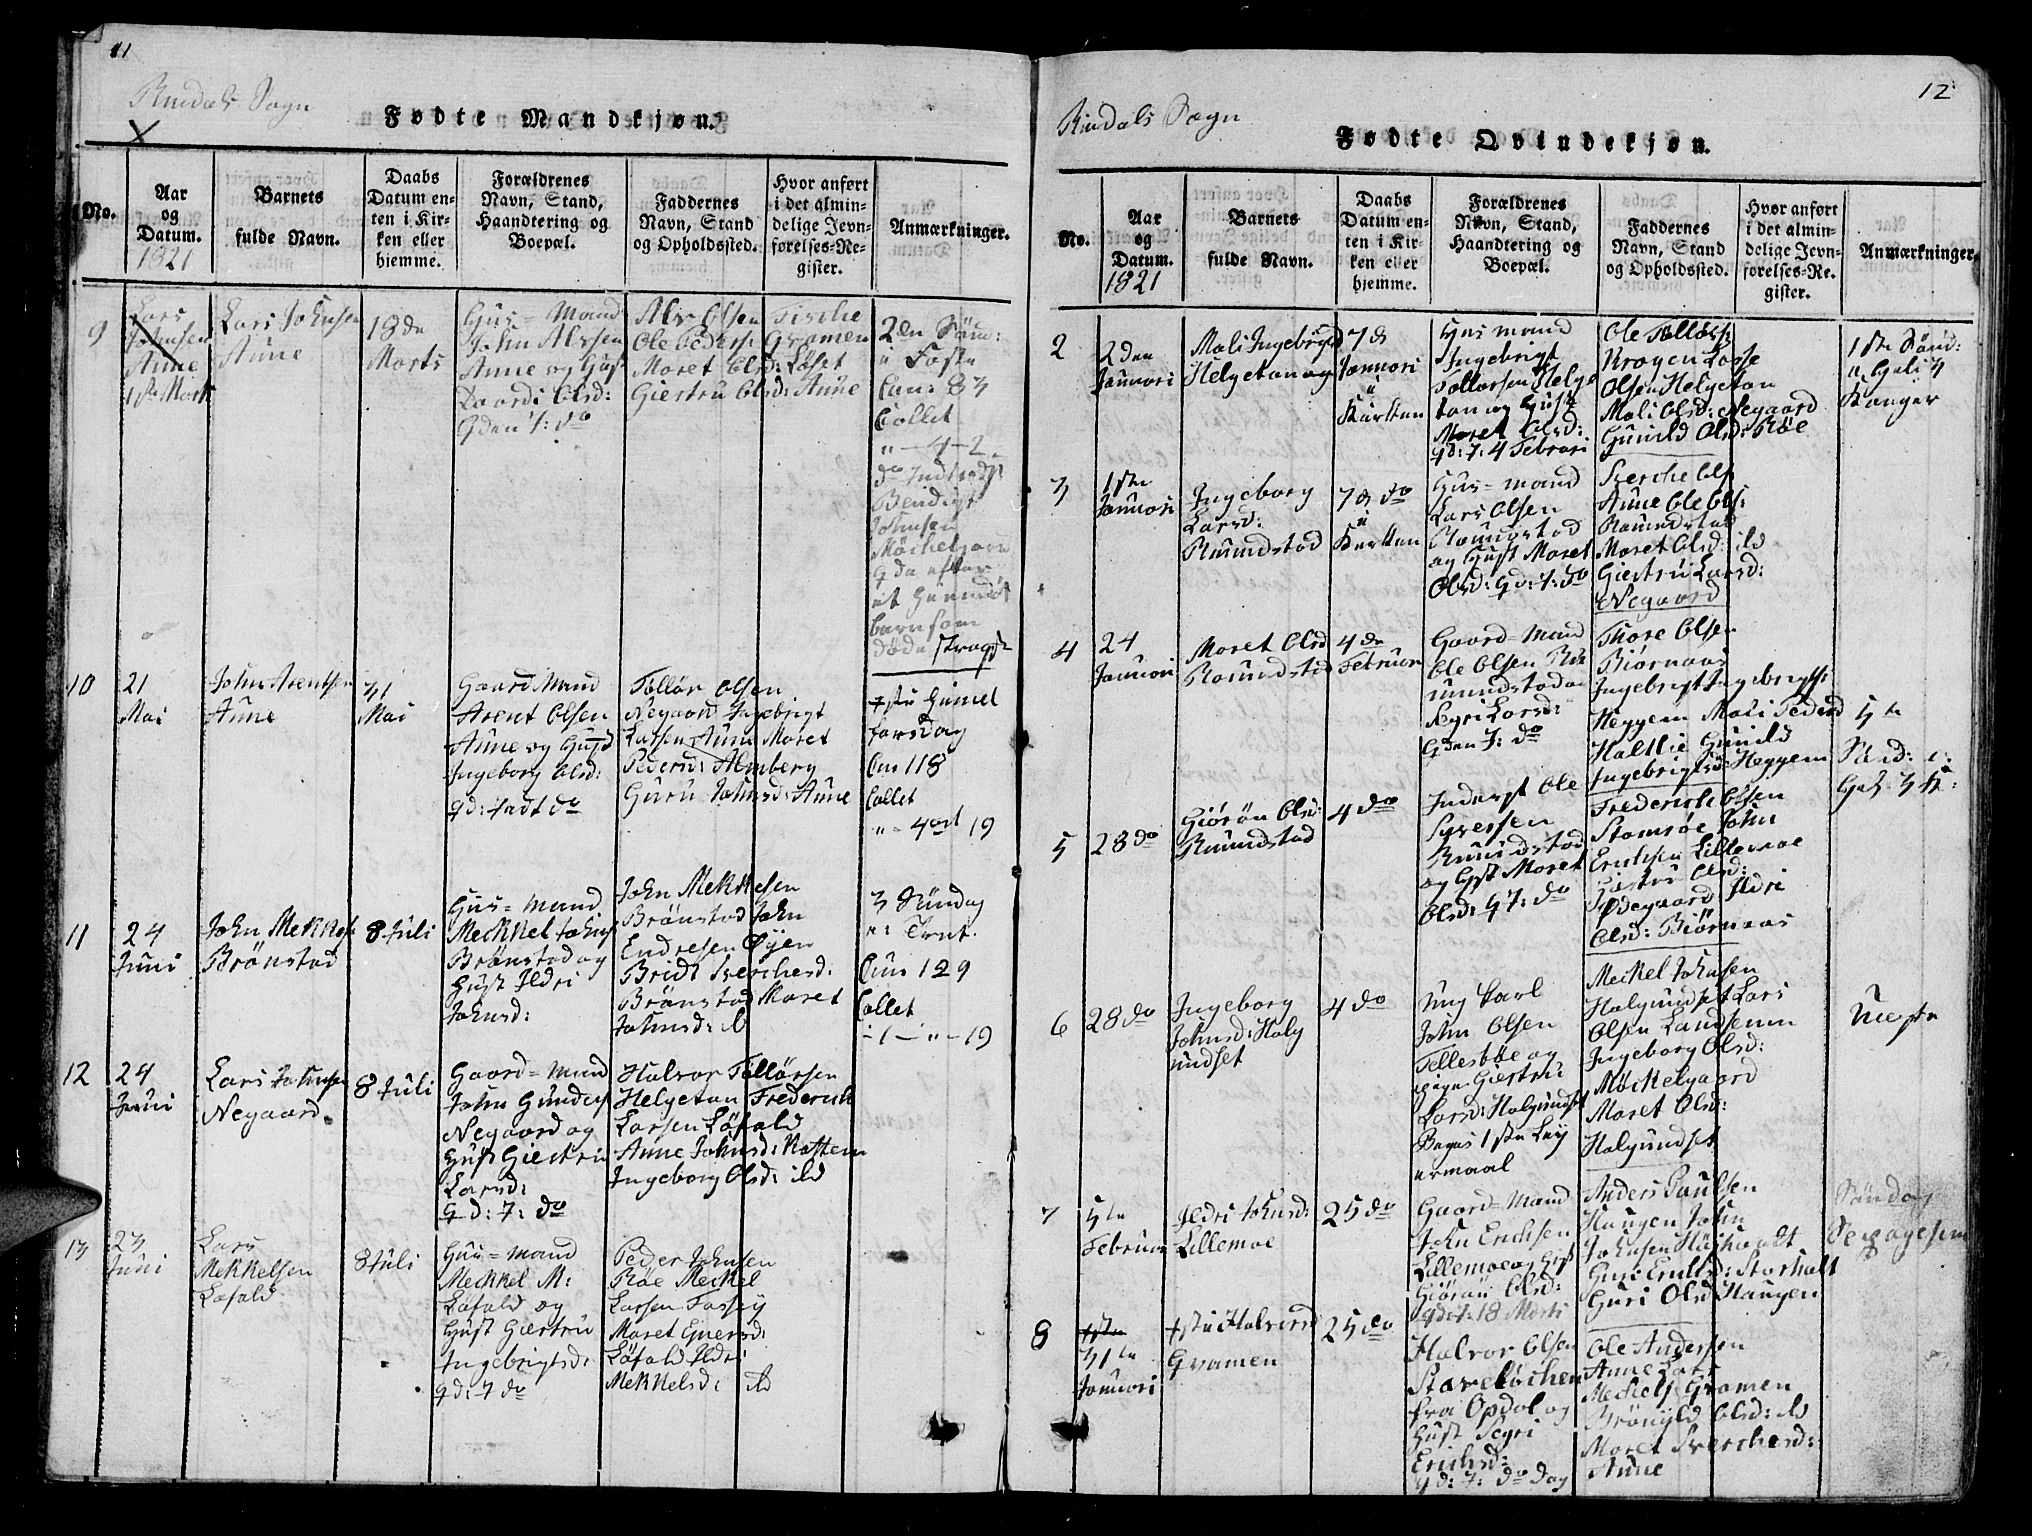 11
Rindals Sogn
Fødte Mandkjøn.
No.
Aar
og
Datum.
1821
Barnets
fulde Navn.
Daabs
Datum en-
ten i Kir-
ken eller
hjemme.
Forældrenes
Navn, Stand,
Haandtering og
Boepæl.
Faddernes
Navn, Stand
og Opholdssted.
Hvor anført
i det almin-
delige Jevn-
førelses-Re-
gister.
Anmærkninger.
9
Lars
Johnsen
Aune
1ste Marts
Lars Johnsen
Aune
18de
Marts
Huus=Mand
John Alvsen
Aune og Hust
Olsd:
Alv Olsen
Ole Peders: Gramen
Maret Olsd: Løset
Giertru Olsd: Aune
2den Sønd:
u Faste
83
Collet
"-4-2
do Inderst
Bendigt
Johnsen
efter
et
barn som
døde strags
10
21
Mai
John Arentsen
Aune
31
Mai
Gaard Mand
Arent Olsen
Aune og Hust
Ingeborg Olsd:
Tollør Olsen
Negaard Ingebrigt
Larsen Aune Maret
Pedersd: Almberg
Guru Johnsd: Aune
1ste Himel
farsdag
118
Collet
"-4 ort 19
11
24
Juni
John Mekkels:
Brønstad
8 Juli
Huus=mand
Meckkel Johns
Brønstad og
Hust Ildri
Johnsd:
John Mekkelsen
Brønstad John
Endresen Øyen
Bridt Sverchesd:
Brønstad Maret
Johnsd: do
3 Søndag
u: Trnt.
129
Collet
-1-"-19
12
24
Juni
Lars Johnsen
Negaard.
8 Juli
Gaard=mand
John Gunders
Negaard og
Hust Giertru
Larsd:
Gd: 7: do
Halvor Tollørsen
Helgetun Frederich
Larsen Løfald
Anne Johnsd: Kattem
Ingeborg Olsd: do
13
23
Juni
Lars
Mekkelsen
Løfald
8 Juli
Huus=mand
Meckkel M:
Løfald og
Hust Giertru
Ingebrigtsd:
gd: 7 do
Peder Johnsen
Røe Meckel
Larsen Fossøy
Maret Eversd:
Løfald Ildri
Mekkelsd: do
12
Rindals Sogn
Fødte Qvindekjøn.
No.
Aar
og
Datum.
1821
Barnets
fulde Navn.
Daabs
Datum en-
ten i Kir-
ken eller
hjemme.
Forældrenes
Navn, Stand,
Haandtering og
Boepæl.
Faddernes
Navn, Stand
og Opholdssted.
Hvor anført
i det almin-
delige Jevn-
førelses-Re-
gister.
Anmærkninger.
2
2den
Januari
Mali Ingebrigtsd
Helgetun
7de
Januari
u
Kirken
Huus mand
Ingebrigt
Tollørsen Helge
tun og Hust
Maret Olsd:
gd: 7: 4 Februari
Ole Tollørs:
Krogen Lasse
Olsen Helgetun
Mali Olsd: Negaard
Gunild Olsd: Røe
1ste Sønd:
u Heli 3
Konger
3
1ste
Januari
Ingeborg
Larsd:
Raundstad
7de do
u
Kirken
Huus=mand
Lars Olsen
Raunstad
og Hust Maret
Olsd: gd: 7: do
Sverche Ols
Aune Ole Ols:
Raundstad
Maret Olsd: do
Giertru Larsd:
Negaard
4
24
Januari
Maret Olsd
Raundstad
4de
Februar
Gaard=mand
Ole Olsen
Raunstad og
Segri Larsd:
gden 7: do
Thore Olsen
Biørnaas
Ingebrigt Ingebrigts:
Heggem Mali Pedersd
Haltlie Gunild
Ingebrigtsd: Heggem
5te
Sønd: u:
Hel. 3 K:
5
28 do
Giørøn Olsd:
Raundstad
4 do
Inderst Ole
Syversen
Raundstad
og Hust Maret
Olsd: g 7: do
Frederich Olsen
Stomsøe John
Erichsen Lillemoe
Giertru Olsd:
Ødegaard Ildri
Olsd: Biørnaas
6
28 do
Ingeborg
Johnsd: Halg
undset
4 do
Ung karl
John Olsen
Tellesbøe og
pige Giertru
Larsd: Halgundset
Begges 1ste Ley
ermaal
Meckel Johnsen
Halgundset Lars
Olsen Landsemm
Ingeborg Olsd:
Møckelgaard
Maret Olsd:
Halgundset
Uægte
7
5te
Februar
Ildri Johnsd:
Lillemoe
25 do
Gaard=Mand
John Erichsen
Lillemoe og Hust
Giørøn Olsd:
gd: 7: 18 Marts
Anders Paulsen
Haugen John
Johnsen
Guri Erichsd: Storholt
Guri Olsd Haugen
Søndag
8
31te
Januari
Halvorsd
Gramen
25 do
Halvor Olsen
Stareløchen
fra Opdal og
Hust Segri
Erichsd:
gd: 7: do dag
Ole Andersen
Aune Lars
Mechels: Gramen
Brønyld Olsd: do
Maret Sverchesd:
Aune